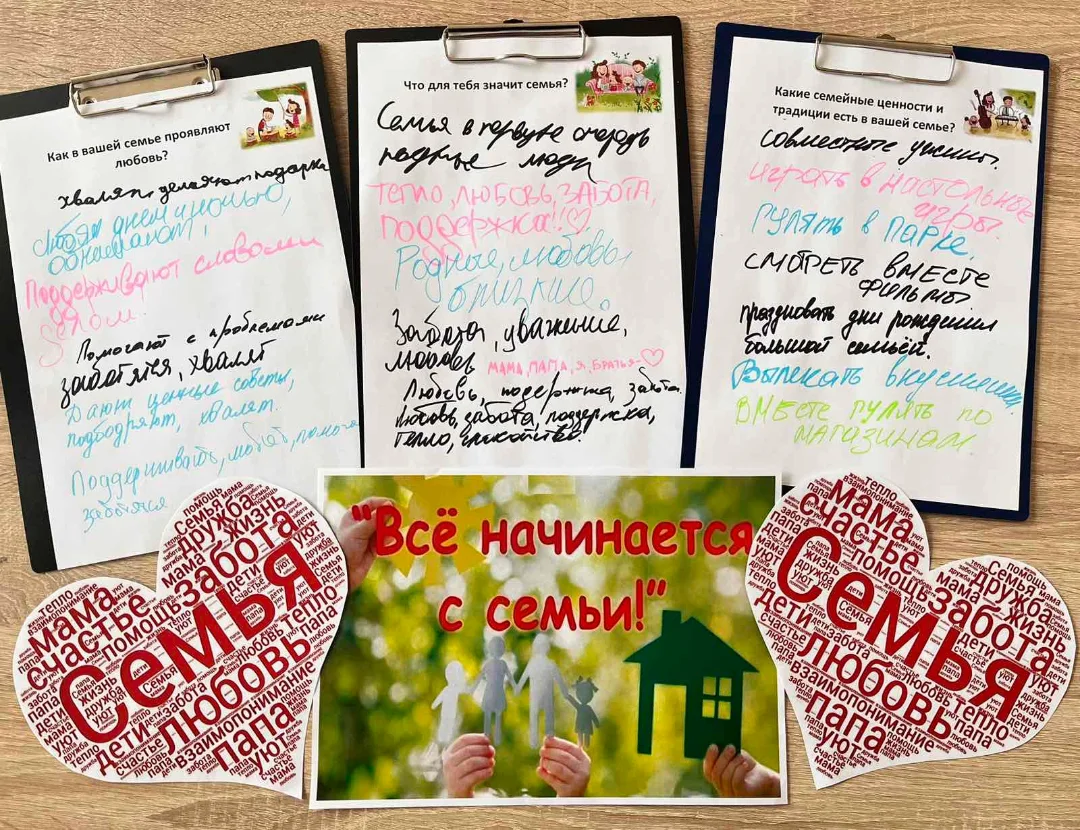 Как в вашей семье проявляют
любовь?
хвалят, делают подарки
любят днем и ночью,
обнимают,
Поддерживают словом и
делом.
Помогают с проблемами
заботятся, хвалят
Дают ценные советы,
подбодряют, хвалят.
Поддерживать, любят, помога
заботятся
Что для тебя значит семья?
Семья в первую очередь
родные люди
тепло, любовь, забота,
поддержка!!♡
Родные, любовь,
близкие.
Забота, уважение,
любовь
мама, папа, я, братья-♡
Любовь, подержка, забота.
любовь, забота, поддержка,
тепло, спокойствие.
Какие семейные ценности и
традиции есть в вашей семье?
совместные ужины.
играть в настольные
игры.
гулять в парке,
смотреть вместе
фильмы
праздновать дни рождения
большой семьёй.
Выпекать вкусняшки.
вместе гулять по
магазинам.
"Всё начинается
с семьи!"
Семья
мама
счастье
помощь
забота
дружба
жизнь
любовь
тепло
дети
взаимопонимание
папа
уют
Семья
мама
счастье
помощь
забота
дружба
жизнь
любовь
тепло
дети
взаимопонимание
папа
уют